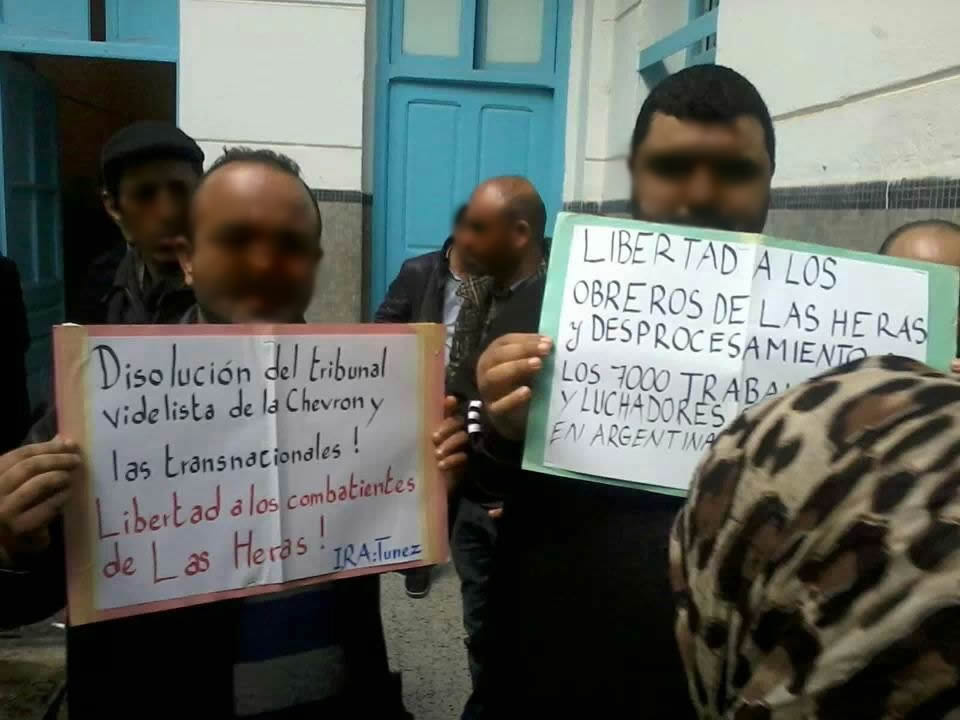 Disolución del tribunal
videlista de la Chevron y
las transnacionales !
Libertad a los combatientes
de Las Heras !
IRA:Tunez
LIBERTAD A LOS
OBREROS DE LAS HERAS
y DESPROCESAMIENTO
LOS 7000
Y LUCHADORES
EN ARGENTINA